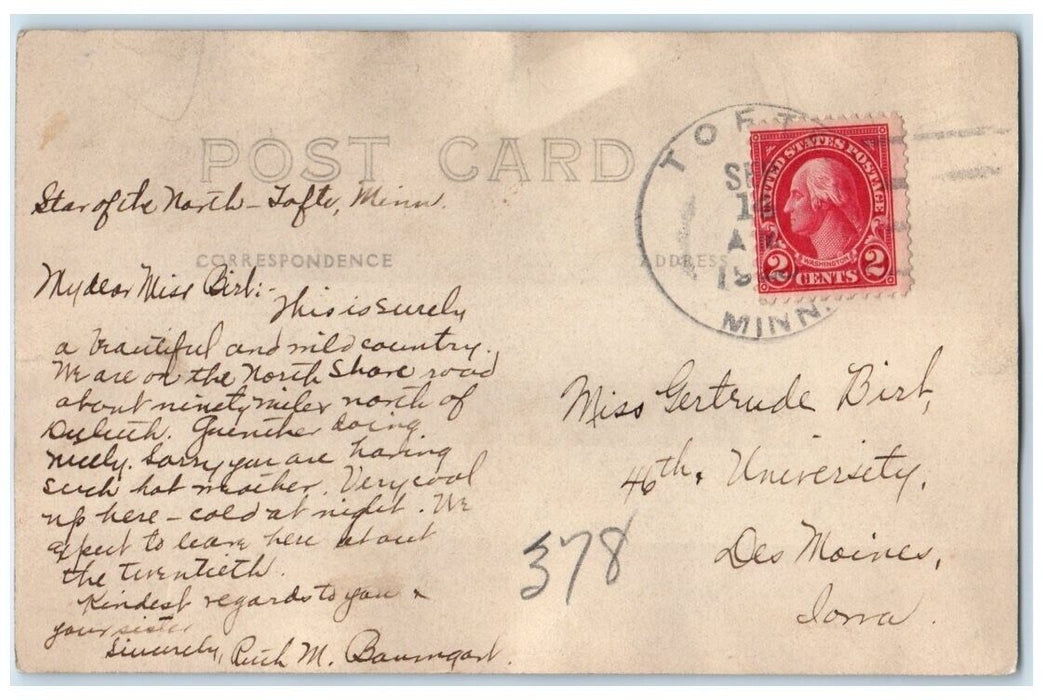 POST CARD
Star of the North - Tofte, Minn.
CORRESPONDENCE
My dear Miss Birt:-
This is surely
a beautiful and wild country.
We are on the North Shore road
about ninety miles north of
Duluth. Guenther doing
nicely. Sorry you are having
such hot weather. Very cool
up here - cold at night. We
expect to leave here about
the twentieth.
Kindest regards to you &
your sister
Sincerely, Ruth M. Baumgart.
ADDRESS
TOFT
SE
1
A
19
MINN.
UNITED STATES POSTAGE
WASHINGTON
2 CENTS 2
Miss Gertrude Birt,
46th. University,
Des Moines,
Iowa.
378